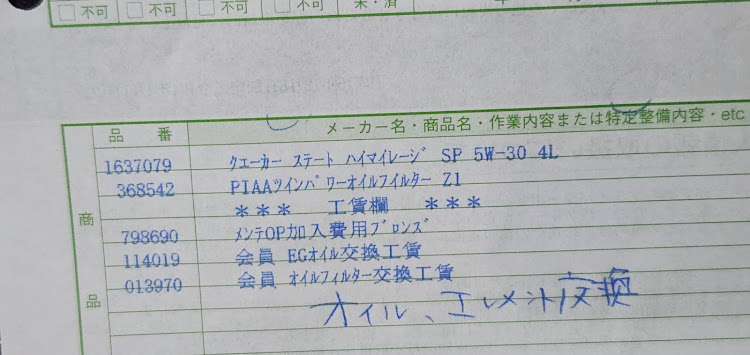 不可 不可 不可 不可 未・済 年
品 番 メーカー名・商品名・作業内容または特定整備内容・etc
1637079 クエーカー ステート ハイマイレージ SP 5W-30 4L
368542 PIAAツインパワーオイルフィルター Z1
*** 工賃欄 ***
798690 メンテOP加入費用ブロンズ
114019 会員 EGオイル交換工賃
013970 会員 オイルフィルター交換工賃
オイル、エレメント交換
商
品